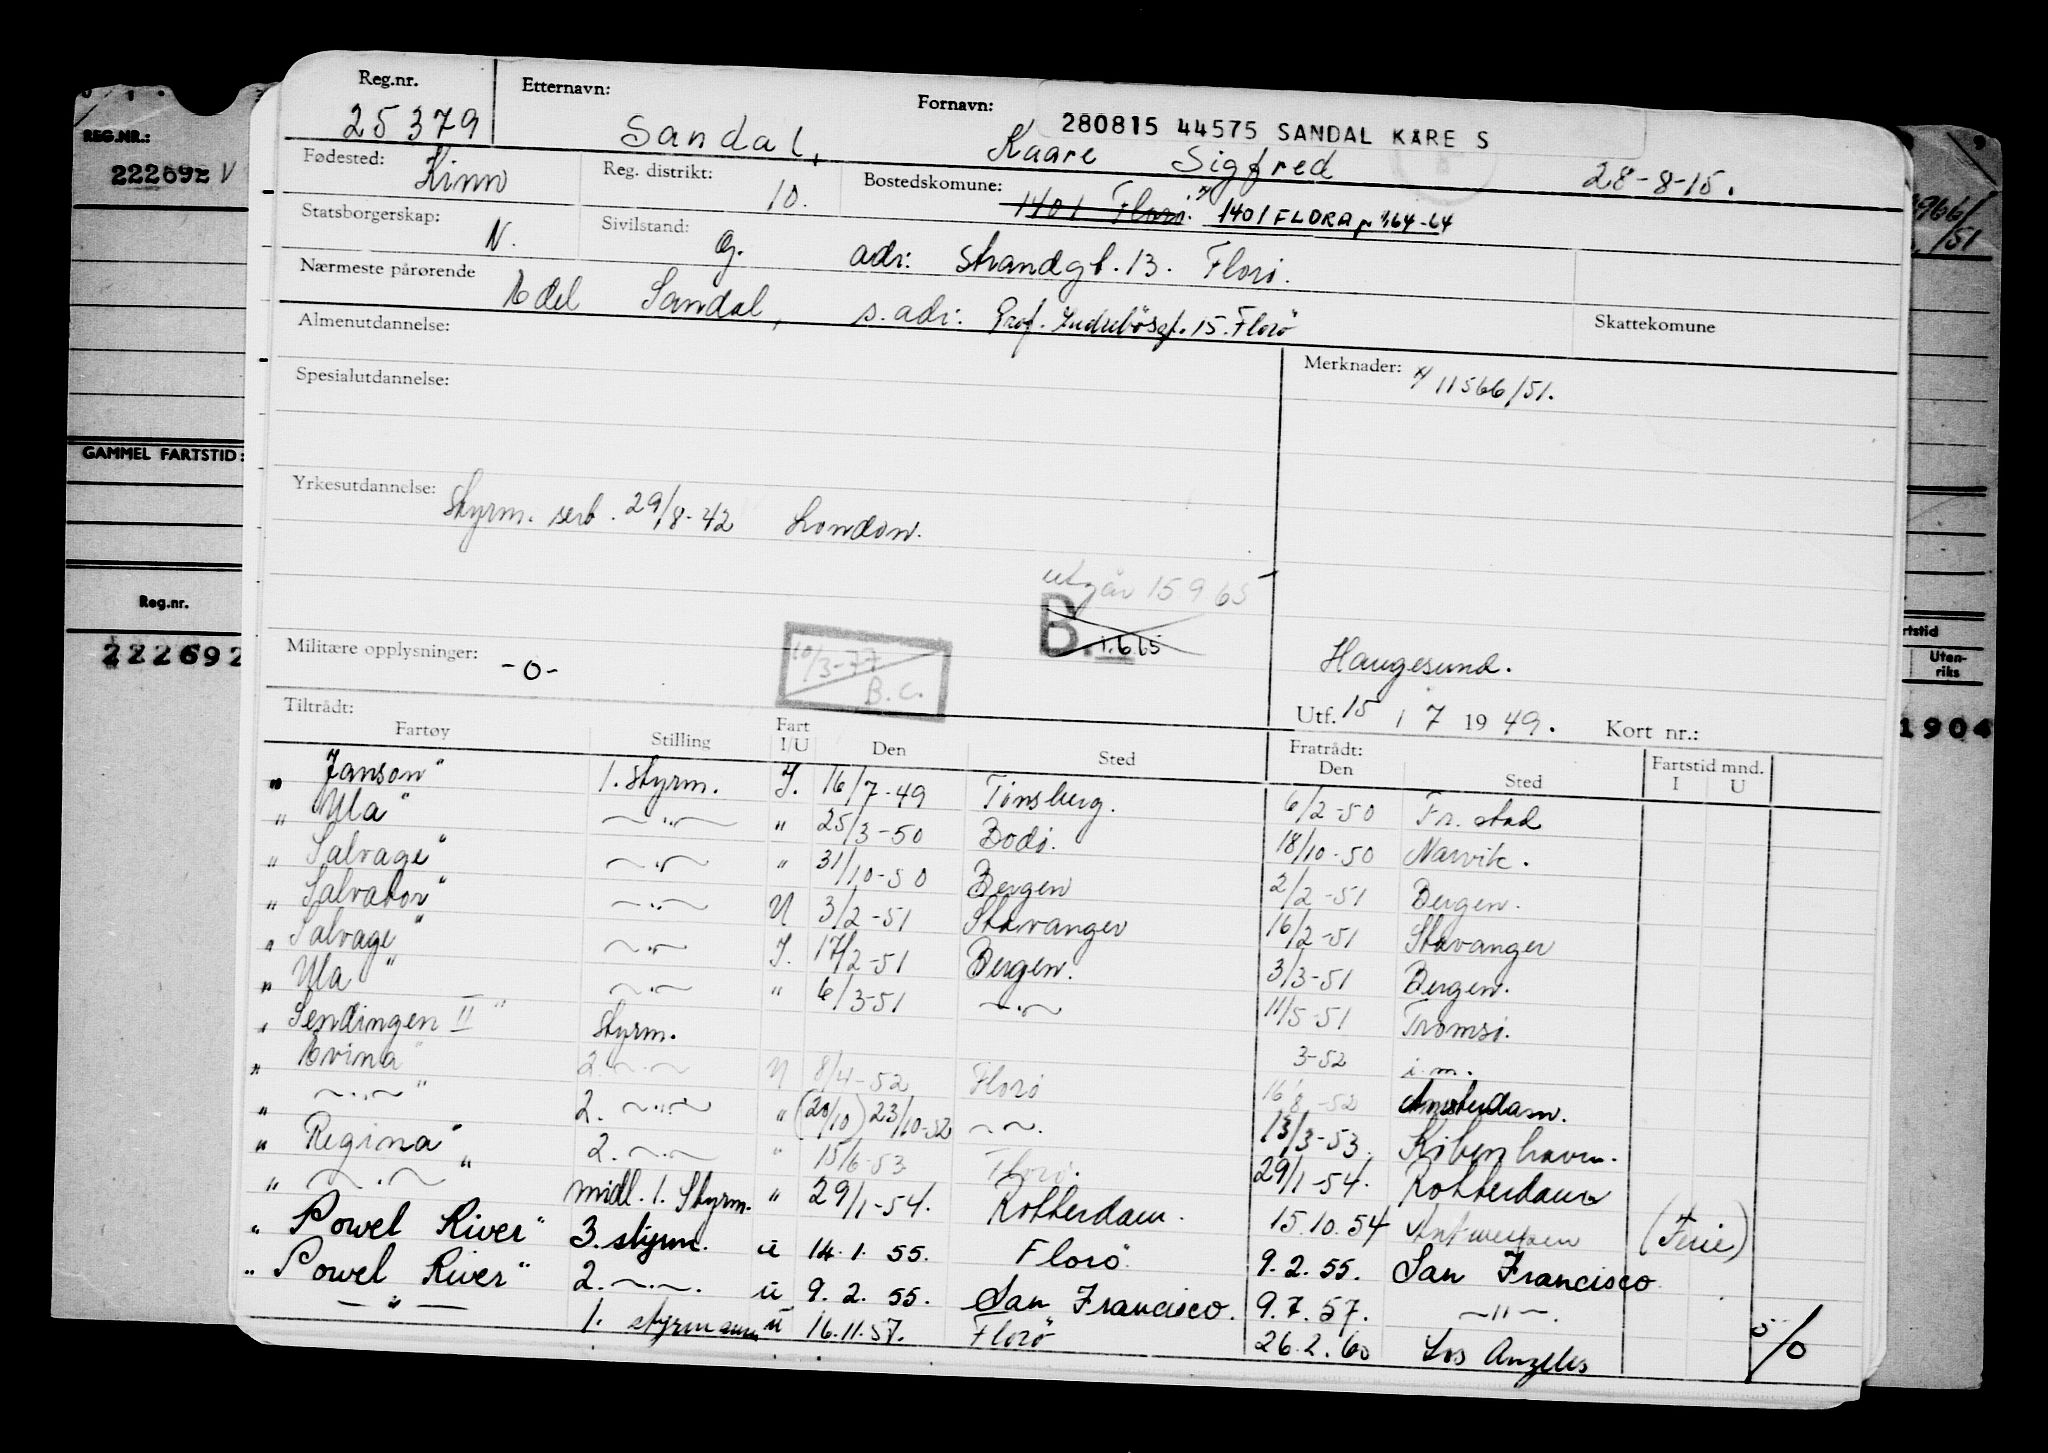 Reg.nr. Etternavn: Fornavn: 280815 44575 SANDAL KÅRE S
25379 Sandal, Kaare Sigfred 28-8-15.
Fødested: Kinn Reg. distrikt: 10. Bostedskomune: 1401 Florø. 1401 FLORA
Statsborgerskap: N. Sivilstand: G. adr: Strandgt. 13. Florø.
Nærmeste pårørende Edel Sandal, s. adr: Prof. Indrebösgt. 15. Florö
Almenutdannelse: Skattekomune
Spesialutdannelse: Merknader: 11566/51.
Yrkesutdannelse: Styrm. serb. 29/8-42 London.
utgår 15 9 65
B. 1.6.65
Militære opplysninger: -0- 10/3-77 B.C. Haugesund.
Tiltrådt: Utf. 15 / 7 1949. Kort nr.:
Fartøy Stilling Fart I/U Den Sted Fratrådt: Den Sted Fartstid mnd. I U
" Janson" 1. styrm. I. 16/7-49 Tønsberg. 6/2-50 Fr.stad
" Ula" —"— " 25/3-50 Bodø. 18/10-50 Narvik.
" Salvage" —"— " 31/10-50 Bergen 2/2-51 Bergen.
" Salvator" —"— U 3/2-51 Stavanger 16/2-51 Stavanger
" Salvage" —"— I. 17/2-51 Bergen. 3/3-51 Bergen.
" Ula" —"— " 6/3-51 —"— 11/5-51 Tromsø.
" Sendingen II" Styrm. 3-52 i.m.
" Evina" 2. —"— U 8/4-52 Florø 16/8-52 Amsterdam.
" —"—" 2. —"— " (20/10) 23/10-52 —"— 13/3-53. København.
" Regina" 2. —"— " 15/6-53 Florø. 29/1-54. Rotterdam
" —"—" midl. 1. Styrm. " 29/1-54. Rotterdam. 15.10.54 Antwerpen (Ferie)
" Powel River" 3. styrm. u 14.1.55. Florö 9.2.55. San Francisco
" Powel River" 2. —"— u 9.2.55. San Francisco. 9.7.57. —"—.
—"— 1. styrmann u 16.11.57. Florö 26.2.60 Los Angeles 5/0
REG.NR.:
222692 V
GAMMEL FARTSTID:
Reg.nr.
222692
/51
rtstid
Uten-
riks
1904